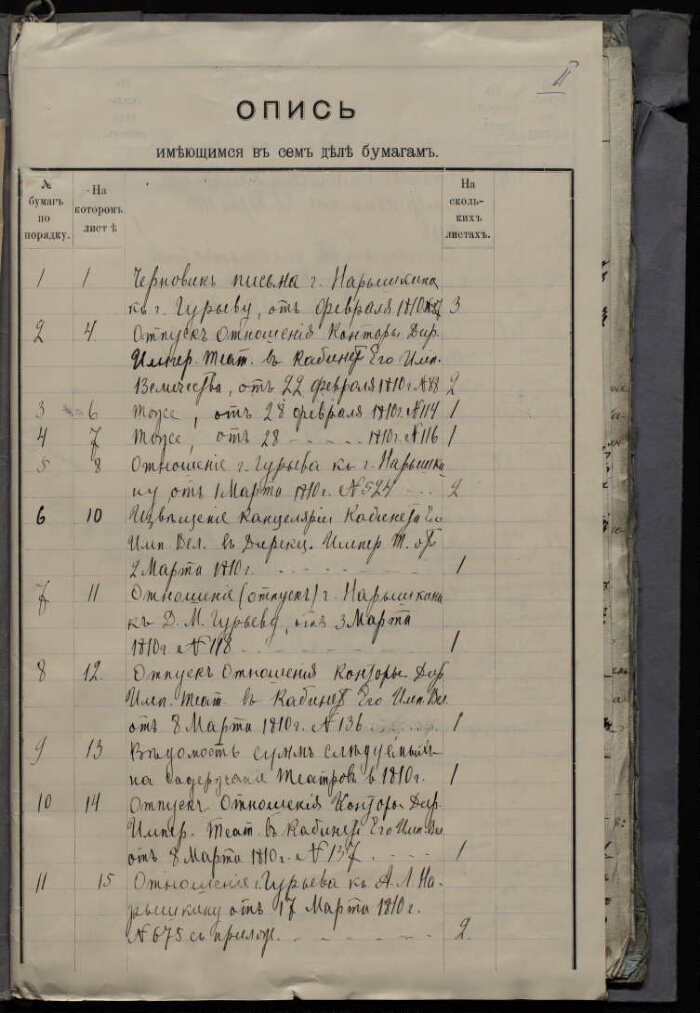 II
ОПИСЬ
имѣющимся въ семъ дѣлѣ бумагамъ.
№ бумагъ по порядку.
На которомъ листѣ
На сколь-кихъ листахъ.
1 1 Черновикъ письма г. Нарышкина
къ г. Гурьеву, отъ февраля 1810 3
2 4 Отпускъ Отношенія Конторы Дир.
Импер. Театр. въ Кабинетъ Его Имп.
Величества, отъ 22 февраля 1810г. №88 2
3 6 Тоже, отъ 28 февраля 1810г. №114 1
4 7 Тоже, отъ 28 - - - - - 1810г. №116 1
5 8 Отношеніе г. Гурьева къ г. Нарышки
ну отъ 1 Марта 1810г. №524 ... 2
6 10 Извѣщеніе Канцеляріи Кабинета Его
Имп. Вел. въ Дирекц. Импер. Т. отъ
2 Марта 1810г. - - - - - - - 1
7 11 Отношеніе (отпускъ) г. Нарышкина
къ Д. М. Гурьеву, отъ 3 Марта
1810г. №118 - - - - - - - 1
8 12. Отпускъ Отношенія Конторы Дир.
Имп. Театр. въ Кабинетъ Его Имп. Вел.
отъ 8 Марта 1810г. №136 1
9 13 Вѣдомость суммъ слѣдуемыхъ
на содержаніе Театровъ въ 1810г. 1
10 14 Отпускъ Отношенія Конторы Дир.
Импер. Театр. въ Кабинетъ Его Имп. Вел.
отъ 8 Марта 1810г. №137. - - - - 1
11 15 Отношеніе г. Гурьева къ А. Л. На-
рышкину отъ 17 Марта 1810г.
№675 съ прилож. - - - - - - 2.